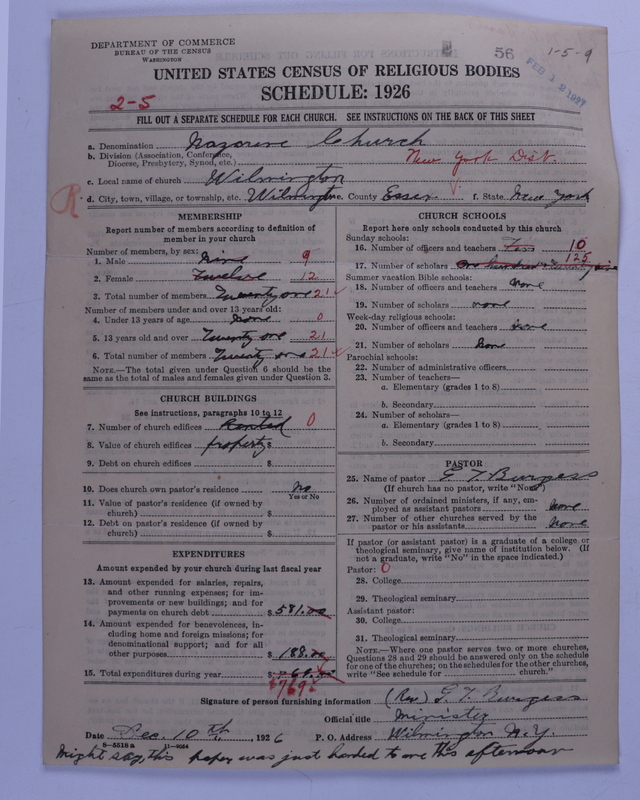 DEPARTMENT OF COMMERCE
BUREAU OF THE CENSUS
WASHINGTON
56
1-5-9
FEB 1 2 1927
UNITED STATES CENSUS OF RELIGIOUS BODIES
SCHEDULE: 1926
2-5
FILL OUT A SEPARATE SCHEDULE FOR EACH CHURCH. SEE INSTRUCTIONS ON THE BACK OF THIS SHEET
a. Denomination Nazarene Church
b. Division (Association, Conference, Diocese, Presbytery, Synod, etc.) New York Dist.
c. Local name of church Wilmington
R d. City, town, village, or township, etc. Wilmington e. County Essex f. State New York
MEMBERSHIP
Report number of members according to definition of member in your church
Number of members, by sex:
1. Male Nine 9
2. Female Twelve 12
3. Total number of members Twenty one 21
Number of members under and over 13 years old:
4. Under 13 years of age None 0
5. 13 years old and over Twenty one 21
6. Total number of members Twenty one 21
NOTE.—The total given under Question 6 should be the same as the total of males and females given under Question 3.
CHURCH BUILDINGS
See instructions, paragraphs 10 to 12
7. Number of church edifices Rented 0
8. Value of church edifices property $
9. Debt on church edifices $
10. Does church own pastor's residence No
Yes or No
11. Value of pastor's residence (if owned by church) $
12. Debt on pastor's residence (if owned by church) $
EXPENDITURES
Amount expended by your church during last fiscal year
13. Amount expended for salaries, repairs, and other running expenses; for improvements or new buildings; and for payments on church debt $ 581.00
14. Amount expended for benevolences, including home and foreign missions; for denominational support; and for all other purposes $ 188.00
15. Total expenditures during year $
$769
CHURCH SCHOOLS
Report here only schools conducted by this church
Sunday schools:
16. Number of officers and teachers Ten 10
17. Number of scholars One hundred & twenty five 125
Summer vacation Bible schools:
18. Number of officers and teachers None
19. Number of scholars none
Week-day religious schools:
20. Number of officers and teachers None
21. Number of scholars None
Parochial schools:
22. Number of administrative officers
23. Number of teachers—
a. Elementary (grades 1 to 8)
b. Secondary
24. Number of scholars—
a. Elementary (grades 1 to 8)
b. Secondary
PASTOR
25. Name of pastor G T Burgess
(If church has no pastor, write "None")
26. Number of ordained ministers, if any, employed as assistant pastors None
27. Number of other churches served by the pastor or his assistants None
If pastor (or assistant pastor) is a graduate of a college or theological seminary, give name of institution below. (If not a graduate, write "No" in the space indicated.)
Pastor: 0
28. College
29. Theological seminary
Assistant pastor:
30. College
31. Theological seminary
NOTE.—Where one pastor serves two or more churches, Questions 28 and 29 should be answered only on the schedule for one of the churches; on the schedules for the other churches, write "See schedule for church"
Signature of person furnishing information (Rev) G. T. Burgess
Official title Minister
Date Dec. 10th, 1926 P. O. Address Wilmington N.Y.
8-5518a 11-9064
Might say, this paper was just handed to me this afternoon